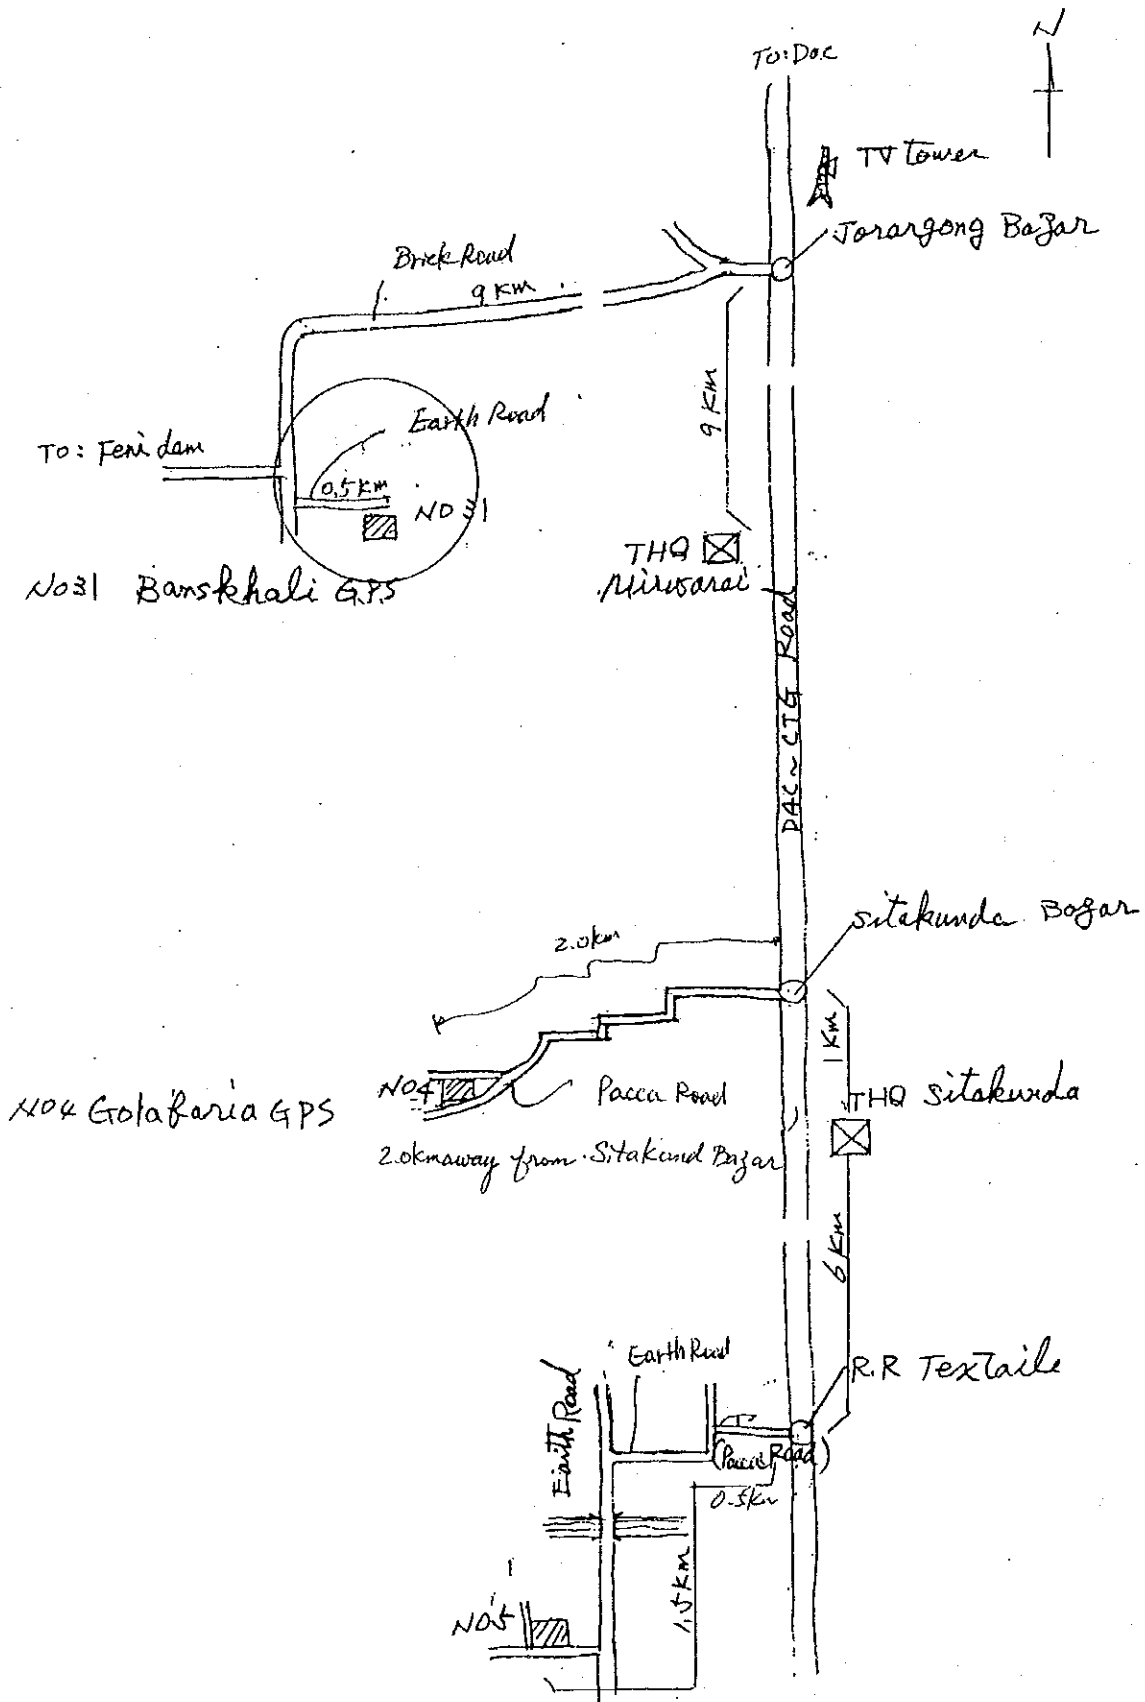 N
To: Dac
TV tower
Jorargong Bazar
Brick Road
9 Km
9 Km
Earth Road
To: Feni dam
0.5 Km
NO 31
THQ
Mirsarai
NO31 Banskhali G.P.S
DAC ~ CTG Road
Sitakunda Bazar
2.0km
1 Km
NO4
Pacca Road
THQ Sitakunda
NO4 Golabaria GPS
2.0km away from Sitakund Bazar
6 Km
Earth Road
R.R Textaile
Earth Road
(Pacca Road)
0.5km
1.5 Km
NO5